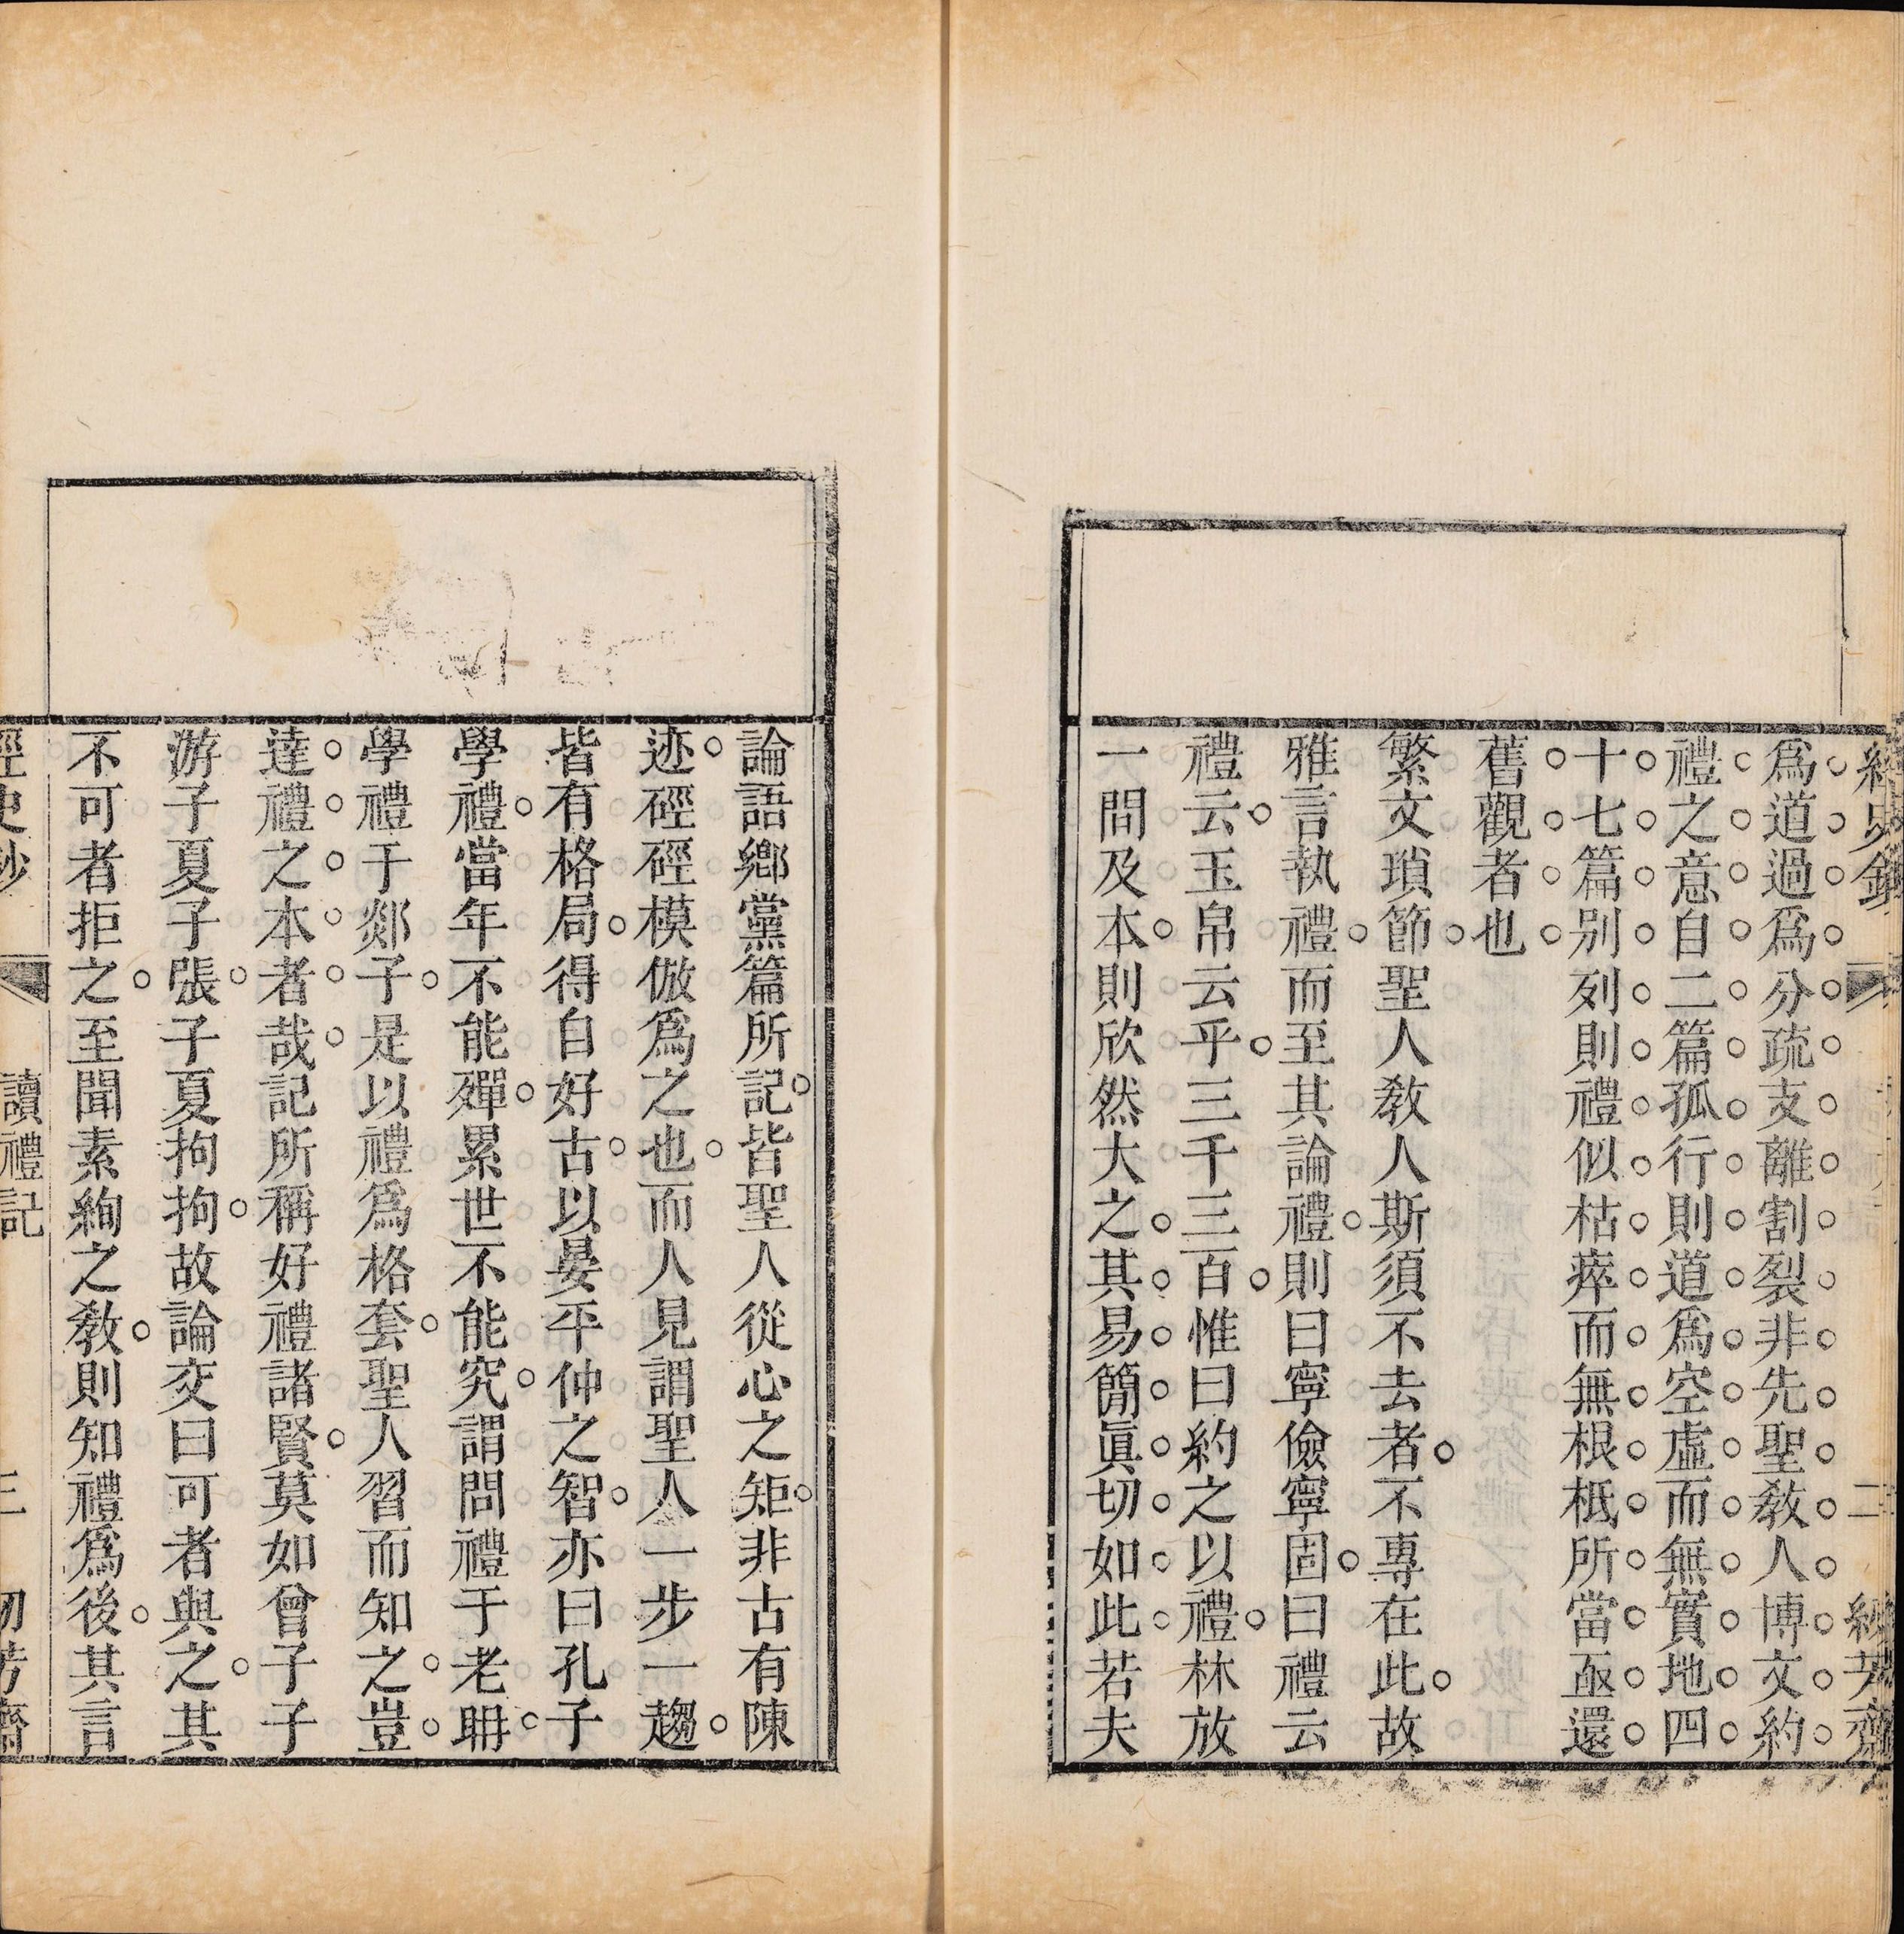 經史鈔 二 紉芳齋
爲道過爲分疏支離割裂非先聖敎人博文約
禮之意自二篇孤行則道爲空虛而無實地四
十七篇別列則禮似枯瘁而無根柢所當亟還
舊觀者也
繁文瑣節聖人敎人斯須不去者不專在此故
雅言執禮而至其論禮則曰寧儉寧固曰禮云
禮云玉帛云乎三千三百惟曰約之以禮林放
一問及本則欣然大之其易簡眞切如此若夫
論語鄕黨篇所記皆聖人從心之矩非古有陳
迹硜硜模倣爲之也而人見謂聖人一步一趨
皆有格局得自好古以晏平仲之智亦曰孔子
學禮當年不能殫累世不能究謂問禮于老聃
學禮于郯子是以禮爲格套聖人習而知之豈
達禮之本者哉記所稱好禮諸賢莫如曾子子
游子夏子張子夏拘拘故論交曰可者與之其
不可者拒之至聞素絢之敎則知禮爲後其言
經史鈔 讀禮記 三 紉芳齋